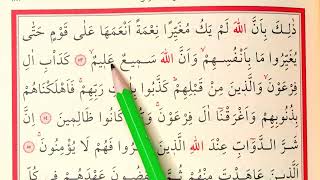 ذٰلِكَ بِاَنَّ اللّٰهَ لَمْ يَكُ مُغَيِّرًا نِعْمَةً اَنْعَمَهَا عَلٰى قَوْمٍ حَتّٰى
يُغَيِّرُوا مَا بِاَنْفُسِهِمْ وَاَنَّ اللّٰهَ سَمِيعٌ عَلِيمٌ ﴿٥٣﴾ كَدَاْبِ اٰلِ
فِرْعَوْنَ وَالَّذِينَ مِنْ قَبْلِهِمْ كَذَّبُوا بِاٰيَاتِ رَبِّهِمْ فَاَهْلَكْنَاهُمْ
بِذُنُوبِهِمْ وَاَغْرَقْنَا اٰلَ فِرْعَوْنَ وَكُلٌّ كَانُوا ظَالِمِينَ ﴿٥٤﴾ اِنَّ
شَرَّ الدَّوَٓابِّ عِنْدَ اللّٰهِ الَّذِينَ كَفَرُوا فَهُمْ لَا يُؤْمِنُونَ ﴿٥٥﴾
اَلَّذِينَ عَاهَدْتَ مِنْهُمْ ثُمَّ يَنْقُضُونَ عَهْدَهُمْ فِي كُلِّ